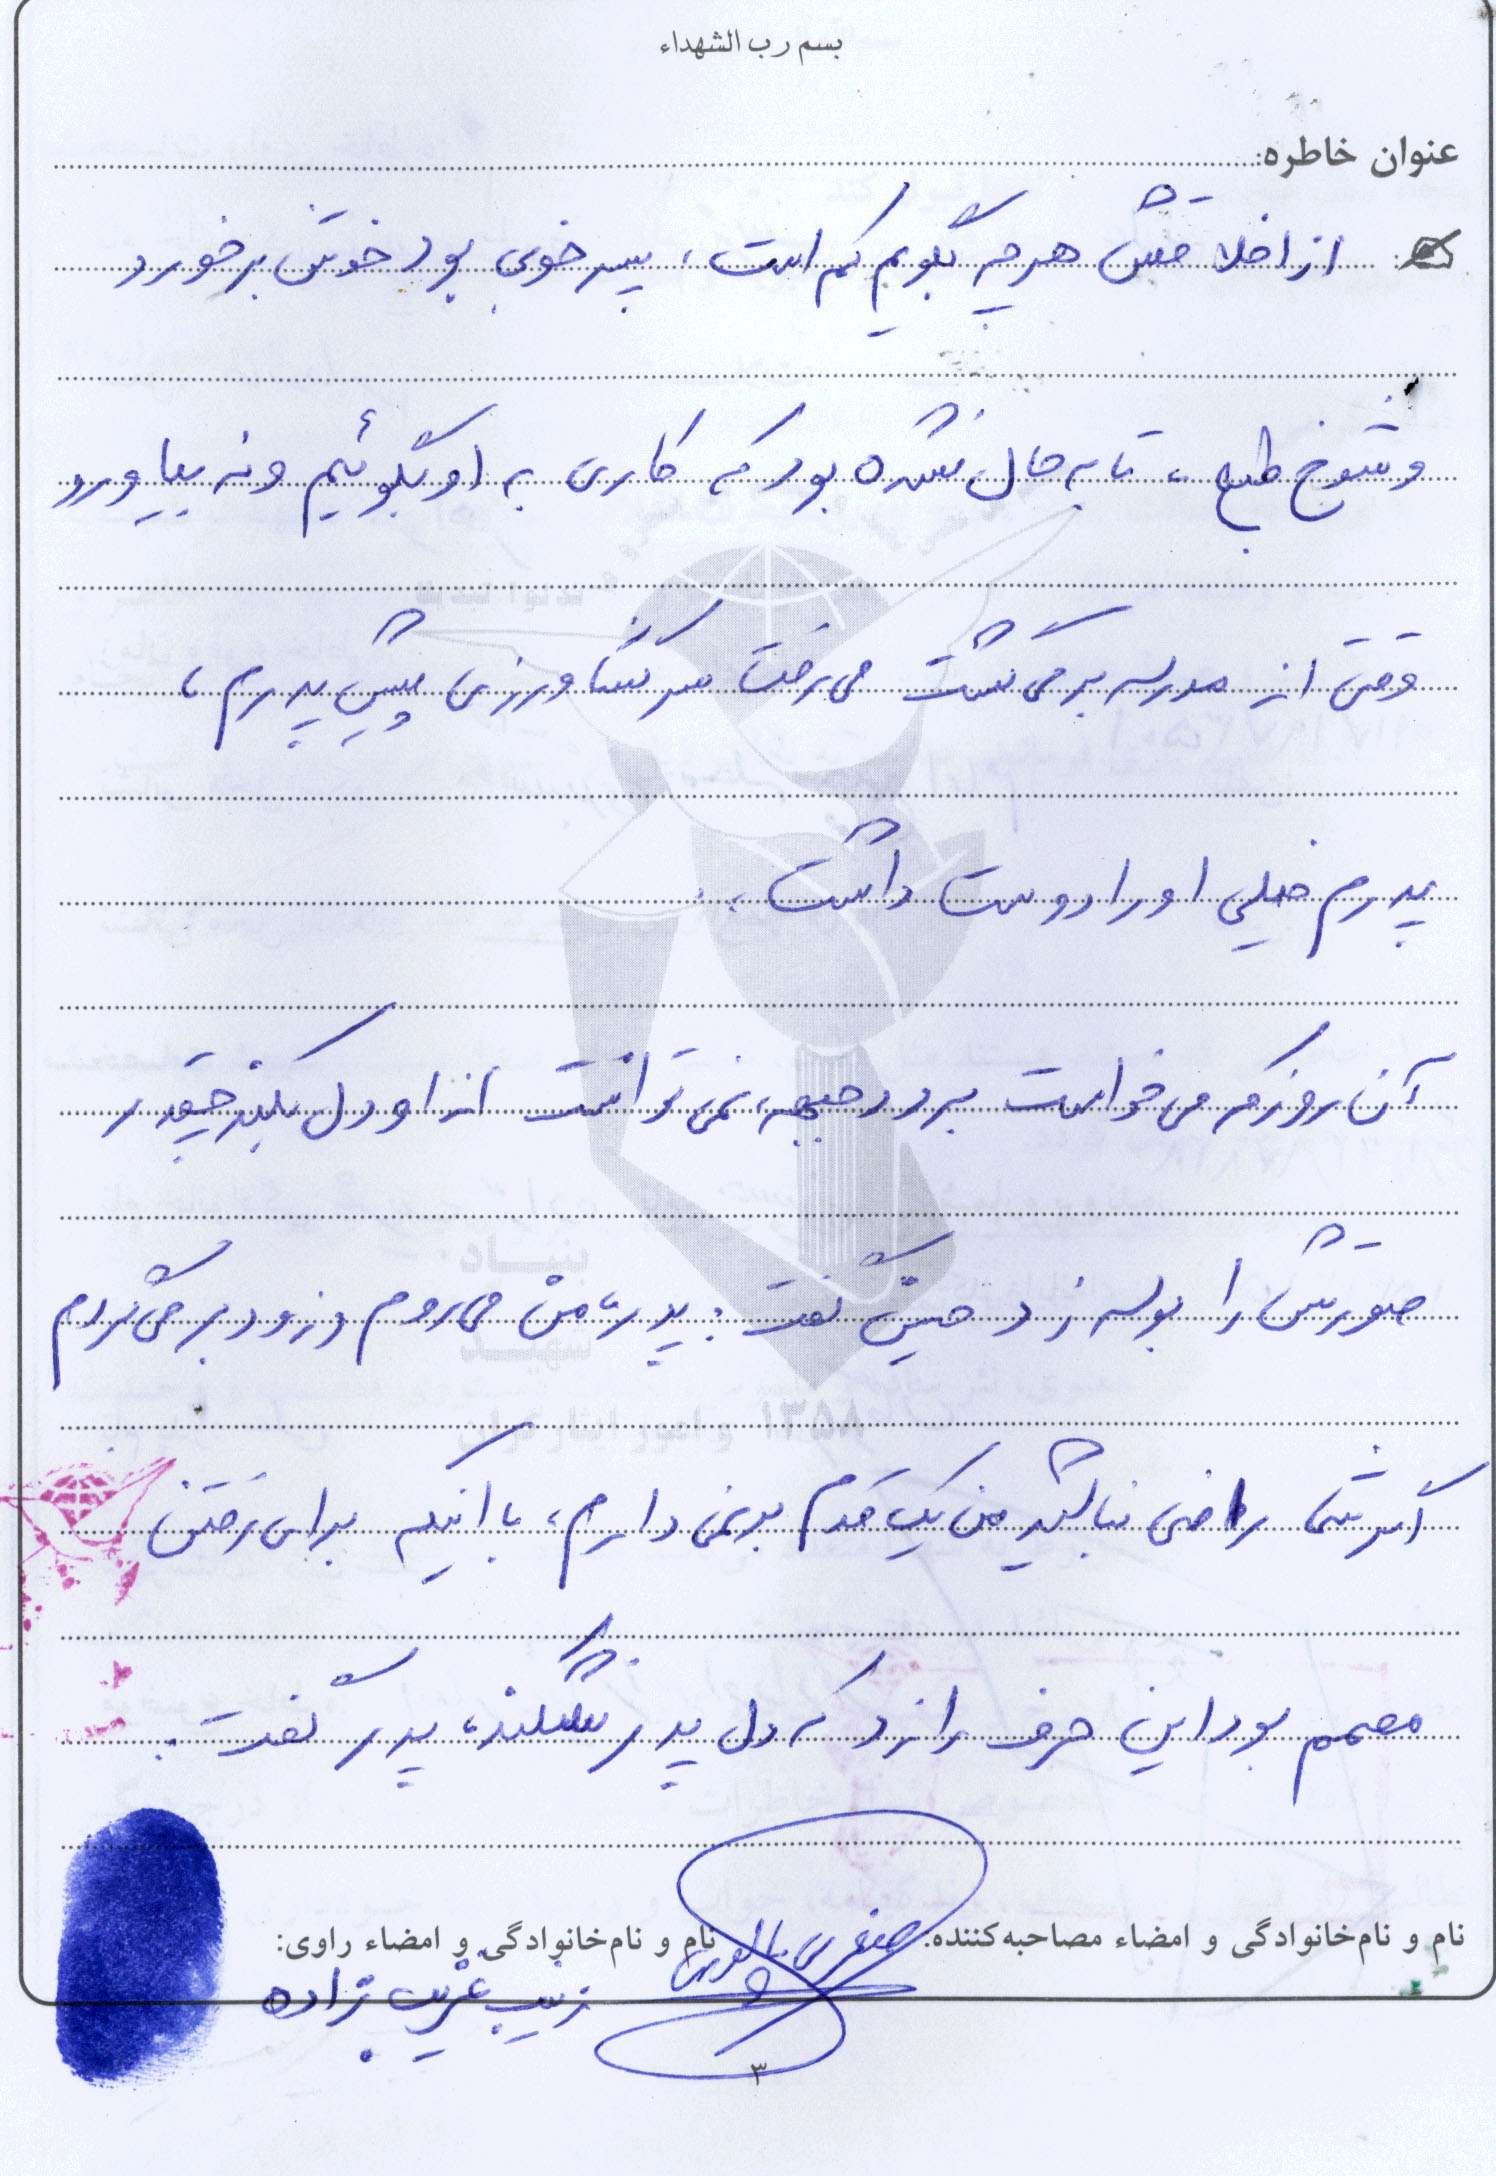 بسم رب الشهداء
عنوان خاطره:
از اخلاقش هر چه بگویم کم است، پسر خوبی بود خوش برخورد
و شوخ طبع، تا به حال نشده بود که کاری به او بگوئیم و نه بیاورد
وقتی از مدرسه بر می گشت می رفت سر کشاورزی پیش پدرم،
پدرم خیلی او را دوست داشت.
آن روز که می خواست برود جبهه، نمی توانست از او دل بکند چقدر
صورتش را بوسه زد گفت: پدر، من می روم و زود بر می گردم
اگر شما راضی نباشید من یک قدم بر نمی دارم، با اینکه برای رفتن
مصمم بود این حرف را زد که دل پدر نشکند، پدر گفت:
نام و نام‌خانوادگی و امضاء مصاحبه‌کننده:
نام و نام‌خانوادگی و امضاء راوی:
زینب غریب زاده
بنیاد
شهید
و امور ایثارگران
۱۳۵۸
۳